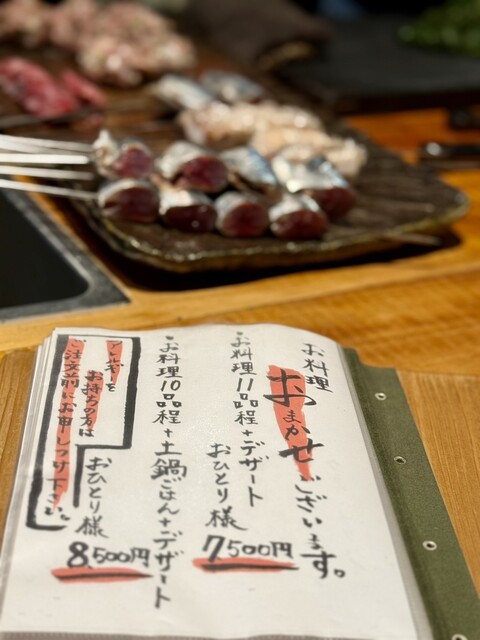 お料理
おまかせございます。
・お料理11品程+デザート
おひとり様
7500円
・お料理10品程+土鍋ごはん+デザート
おひとり様
8,500円
アレルギーを
お持ちの方は
ご注文前にお申しつけ下さい。